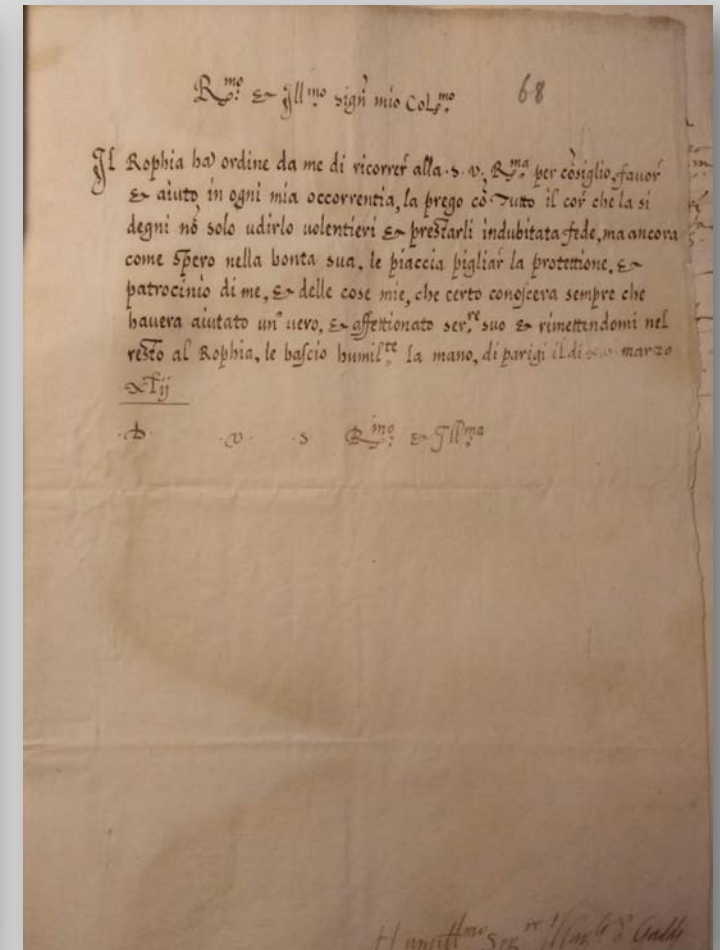 R.mo & Ill.mo sign̄ mio Col.mo 68
Il Rophia ha ordine da me di ricorrer̄ alla .s. v. R.ma per cōsiglio, favor̄
& aiuto in ogni mia occorrentia, la prego cō tutto il cor̄ che la si
degni nō solo udirlo uolentieri & prestarli indubitata fede, ma ancora
come spero nella bonta sua, le piaccia pigliar̄ la protettione, &
patrocinio di me, & delle cose mie, che certo conoscera sempre che
havera aiutato un° uero, & affettionato ser.re suo & rimettendomi nel
resto al Rophia, le bascio humil.te la mano, di parigi il di marzo
.D. .v. .s R.mo & Ill.ma
Humill.mo Ser.re Gaddi